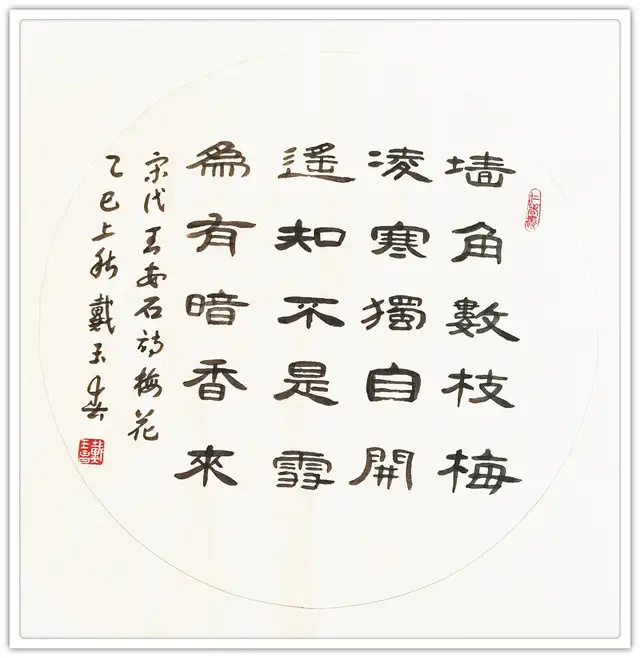 墙角數枝梅
凌寒獨自開
遙知不是雪
為有暗香來
宋代王安石詩梅花
乙巳上秋戴玉